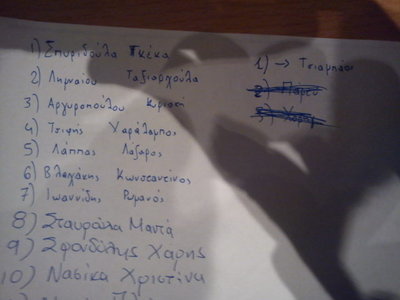 1) Σπυριδούλα Γκέκα
2) Ταξιαρχούλα
3) Αργυροπούλου
4) Τσιφής Χαράλαμπος
5) Λάππας Λάζαρος
6) Βλαχάκης Κωνσταντίνος
7) Ιωαννίδης Ρωμανός
8) Σταυρούλα Μαντά
9) Σφονδύλης Χάρης
10) Νασίκα Χριστίνα
1) →
2)
3) Χάρης